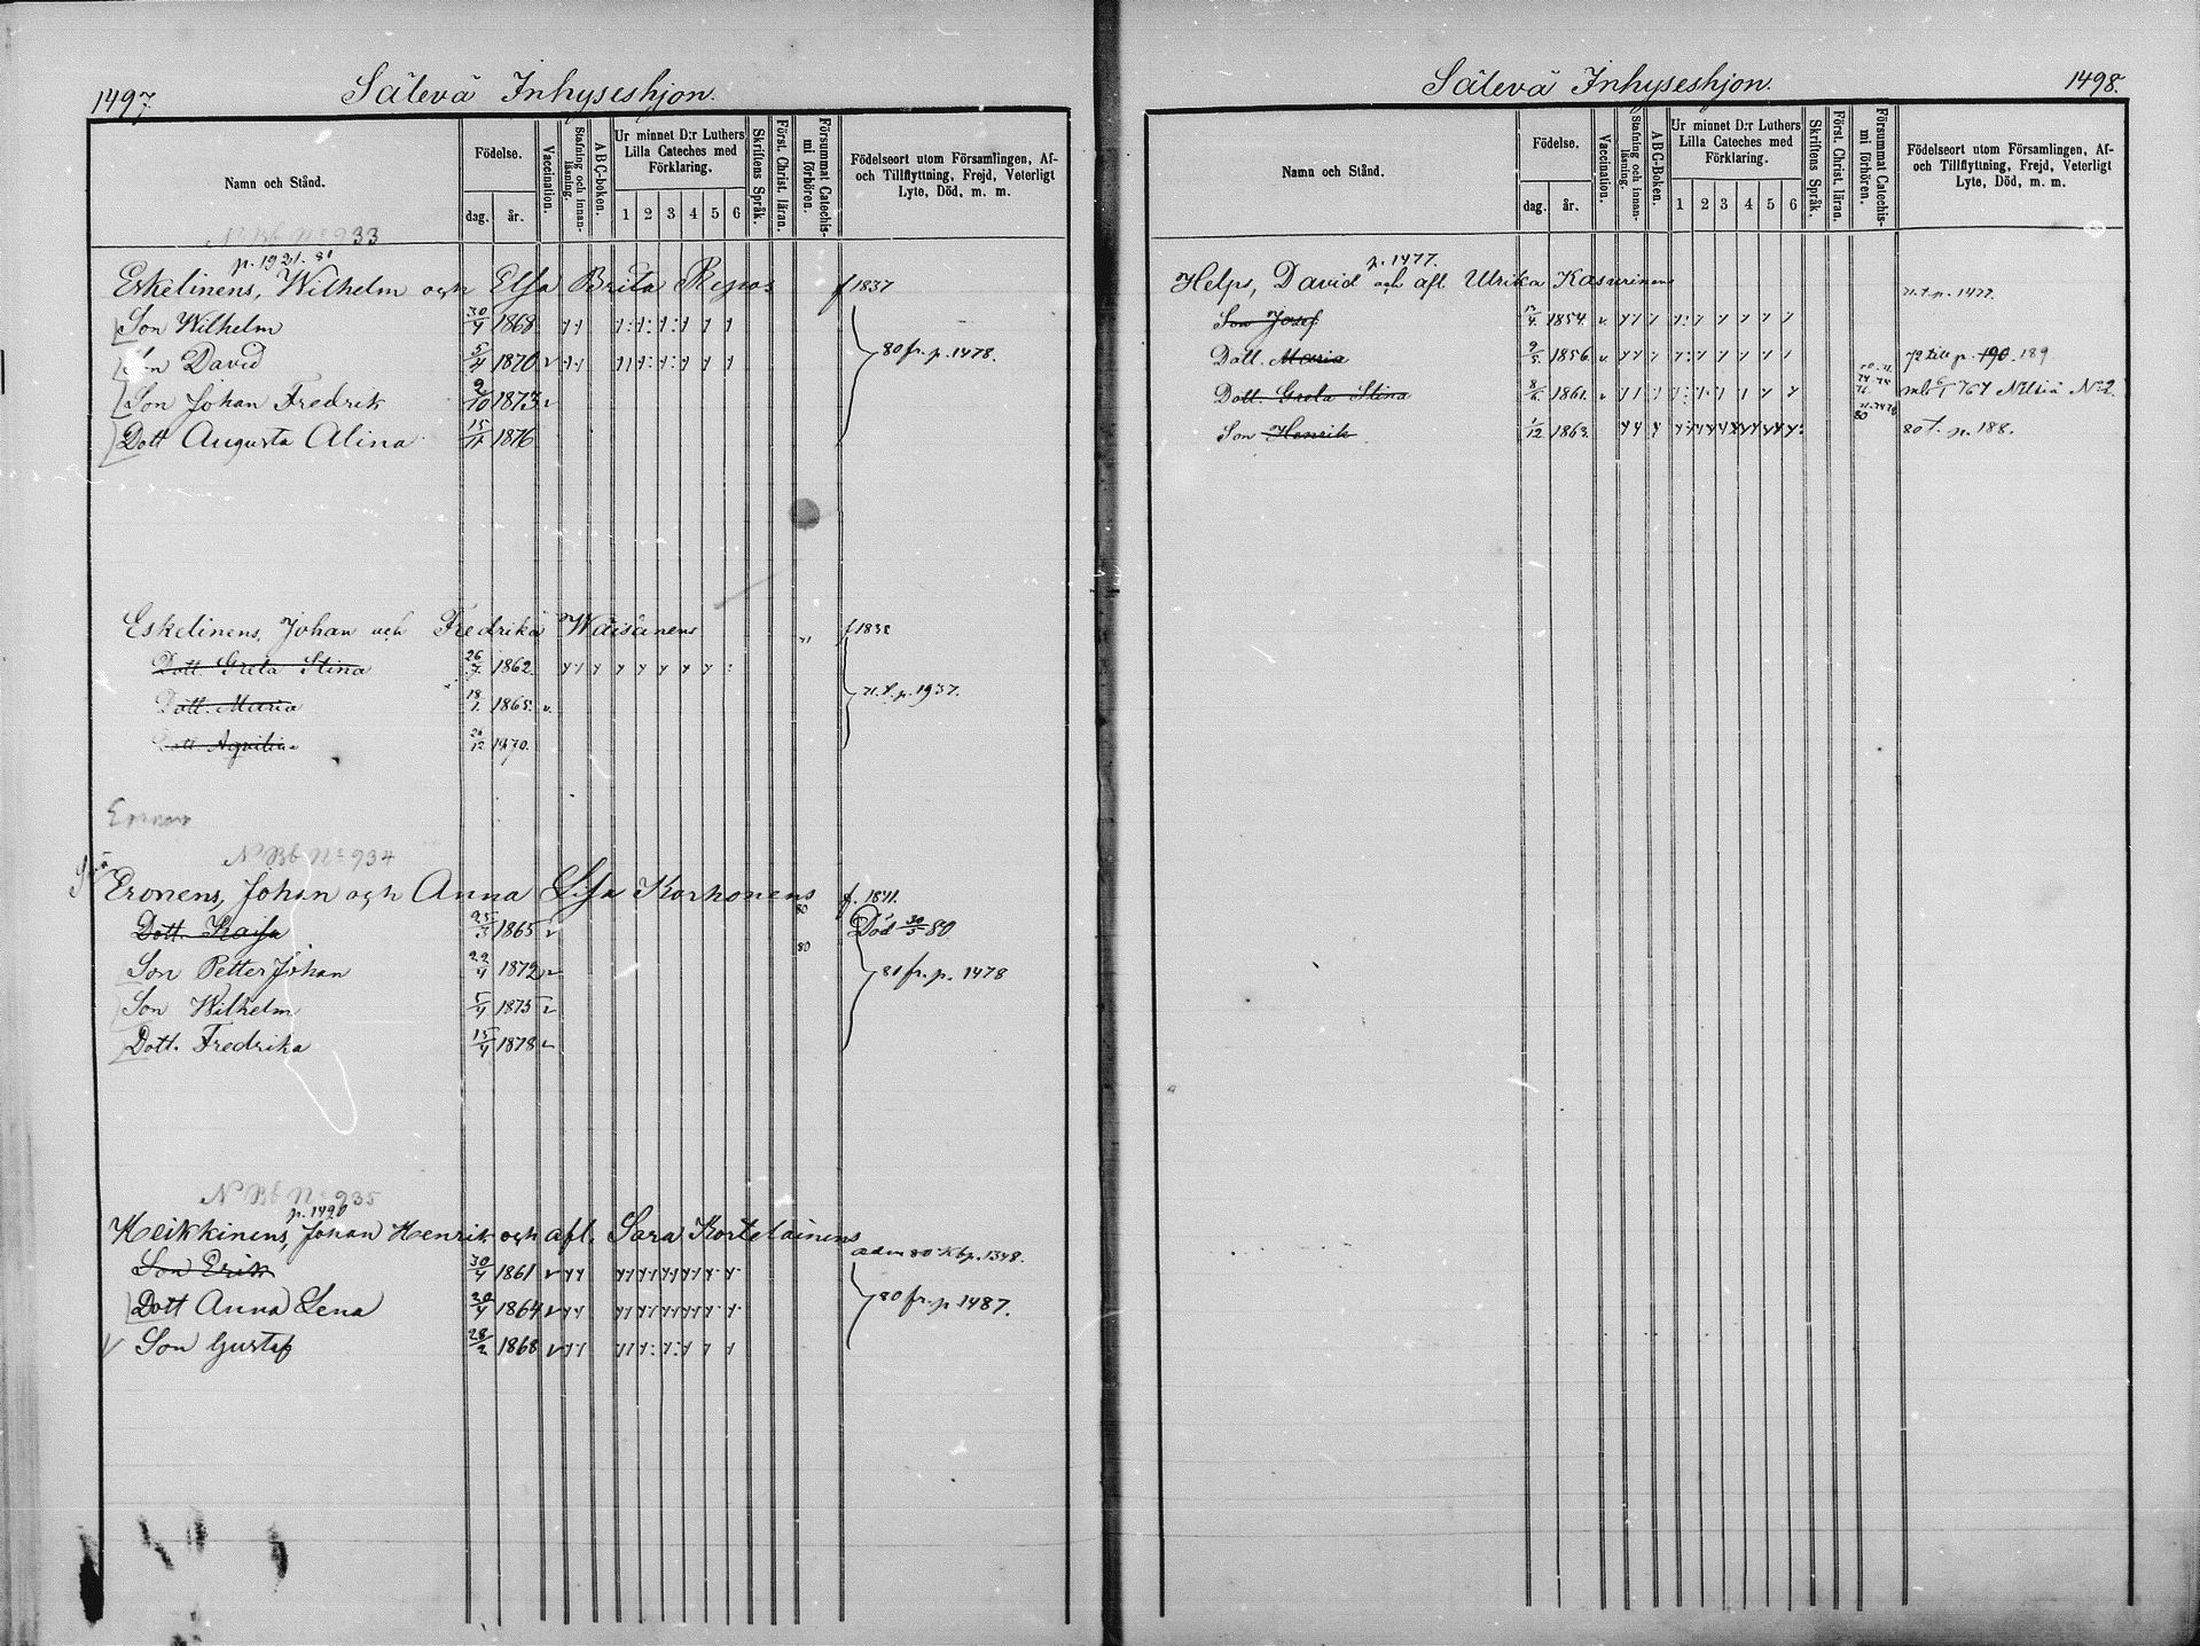 1497.
Sälevä Inhyseshjon.
Namn och Stånd.
Födelse.
dag.
år.
Vaccination.
Stafning och innan-läsning.
ABC-boken.
Ur minnet D:r Luthers
Lilla Cateches med
Förklaring.
1 2 3 4 5 6
Skriftens Språk.
Först. Christ. läran.
Försummat Catechis-
mi förhören.
Födelseort utom Församlingen, Af-
och Tillflyttning, Frejd, Veterligt
Lyte, Död, m. m.
N Bb No 933
p. 1921. 81
Eskelinens, Wilhelm och Elsa Brita Repos f 1837
Son Wilhelm 30/4 1868
Son David 5/4 1870 v 80 fr. p. 1478.
Son Johan Fredrik 2/10 1873 v
Dott Augusta Alina 15/11 1876
Eskelinens, Johan och Fredrika Wäisänens 71 f 1838
Dott. Greta Stina 26/7 1862.
Dott. Maria 18/1 1865. v. 71. t. p. 1937.
Dott Aqvilina 26/12 1870.
N Bb No 934
Eronens, Johan och Anna Lisa Korhonens 80 f. 1841.
Dott. Kaisa 25/3 1865 v Död 30/5 80
Son Petter Johan 22/4 1872 v 80 81 fr. p. 1478
Son Wilhelm 5/4 1875 v
Dott. Fredrika 15/4 1878 v
N Bb No 935
p. 1490
Heikkinens, Johan Henrik och afl. Sara Kortelainens
Son Erik 30/4 1861 v adm 80 Kbp. 1348.
Dott Anna Lena 30/4 1864 v 80 fr. p 1487.
Son Gustaf 28/2 1868 v
Sälevä Inhyseshjon.
1498.
Namn och Stånd.
Födelse.
dag.
år.
Vaccination.
Stafning och innan-läsning.
ABC-Boken.
Ur minnet D:r Luthers
Lilla Cateches med
Förklaring.
1 2 3 4 5 6
Skriftens Språk.
Först. Christ. läran.
Försummat Catechis-
mi förhören.
Födelseort utom Församlingen, Af-
och Tillflyttning, Frejd, Veterligt
Lyte, Död, m. m.
p. 1477.
Helps, David och afl. Ulrika Kasurinens
Son Josef 1854. v. 71. t. p. 1477.
Dott. Maria 9/5 1856. v. 72 till p. 190. 189
Dott. Greta Stina 8/6 1861. v Nilsiä No 2.
Son Henrik 1/12 1863. 80 80 t. p. 188.